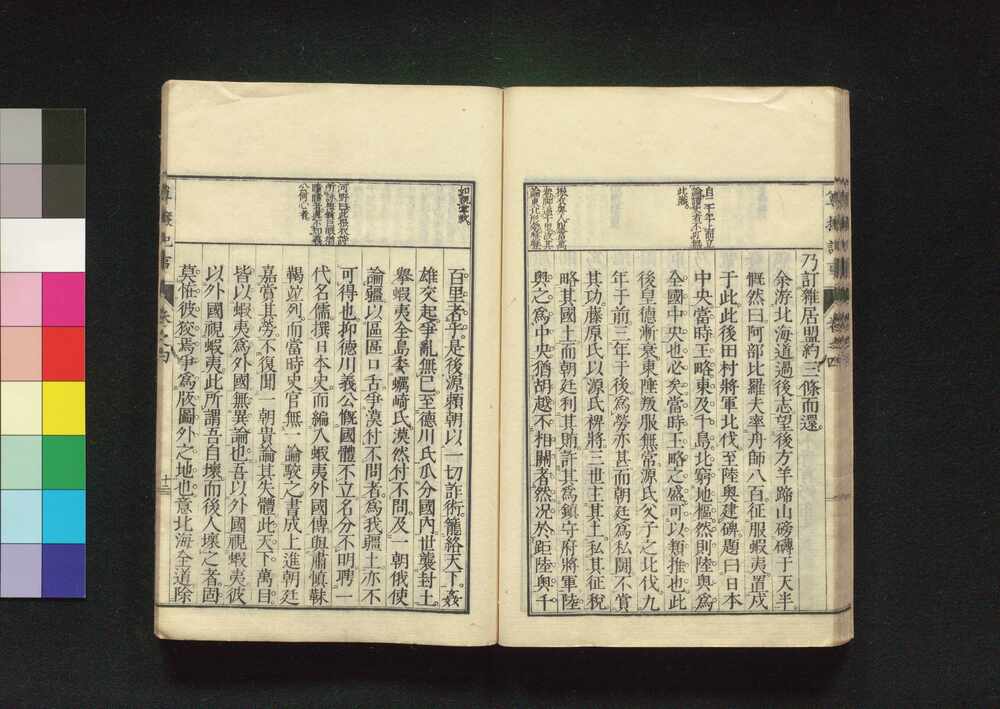 乃訂雜居盟約三條而還。
余游北海道過後志望後方羊蹄山磅礴于天半
慨然曰阿部比羅夫率舟師八百征服蝦夷置戍
于此此後田村將軍北伐至陸奧建碑題曰日本
中央當時王略東及千島北窮地樞然則陸奧爲
全國中央也必矣當時王略之盛可以類推也此
後皇德漸衰東陲叛服無常源氏父子之北伐九
年于前三年于後爲勞亦甚而朝廷爲私鬪不賞
其功藤原氏以源氏裨將三世主其土私其征稅
略其國土而朝廷利其賄許其爲鎮守府將軍陸
奧之爲中央猶胡越不相關者然況於距陸奧千
自二千年下而立
論讀者不可無
此識
百里者乎是後源賴朝以一切詐術籠絡天下姦
雄交起爭亂無已至德川氏瓜分國內世襲封土
舉蝦夷全島委蠣崎氏漠然付不問及一朝俄使
論疆以區區口舌爭漠付不問者爲我疆土亦不
可得也抑德川義公慨國體不立名分不明聘一
代名儒撰日本史而編入蝦夷外國傳與肅愼靺
鞨竝列而當時史官無一論駁之書成上進朝廷
嘉賞其勞不復聞一朝貴論其失體此天下萬目
皆以蝦夷爲外國無異論也吾以外國視蝦夷彼
以外國視蝦夷此所謂吾自壞而後人壞之者固
莫恠彼狡焉爭爲版圖外之地也意北海全道除
如視掌哉
十三